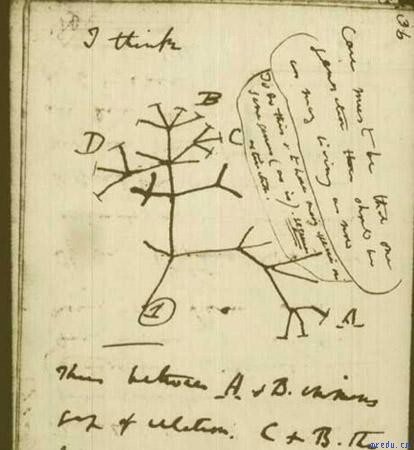 36
I think
Case must be that one
generation then should be
as many living as now
To do this & to have many species in
same genus (as is) requires
extinction.
B
D
C
A
1
Thus between A & B. immense
gap of relation. C & B. The